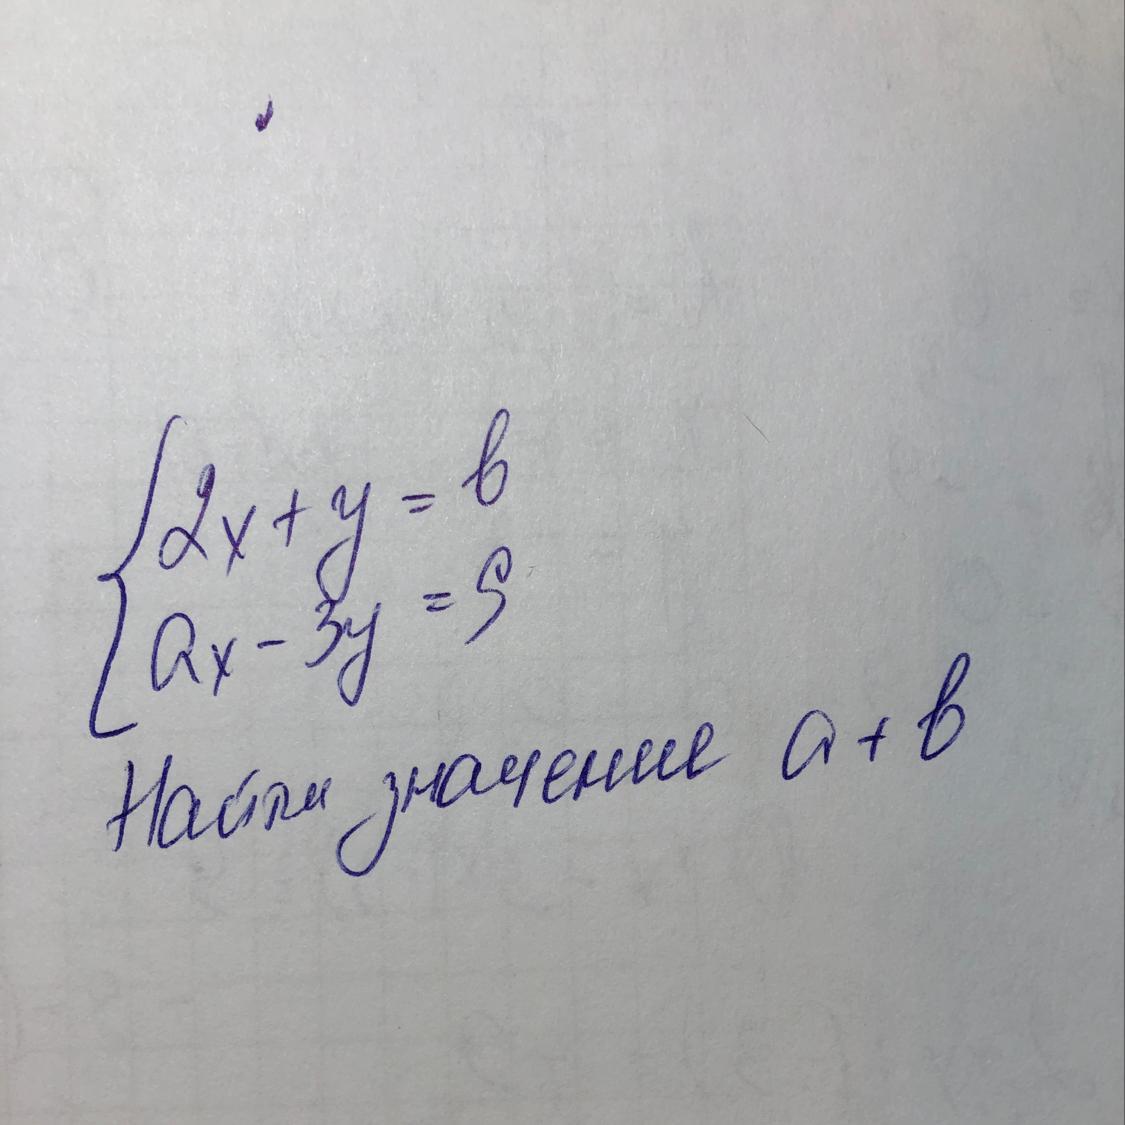 2x + y = b
ax - 3y = 5
Найти значение a + b